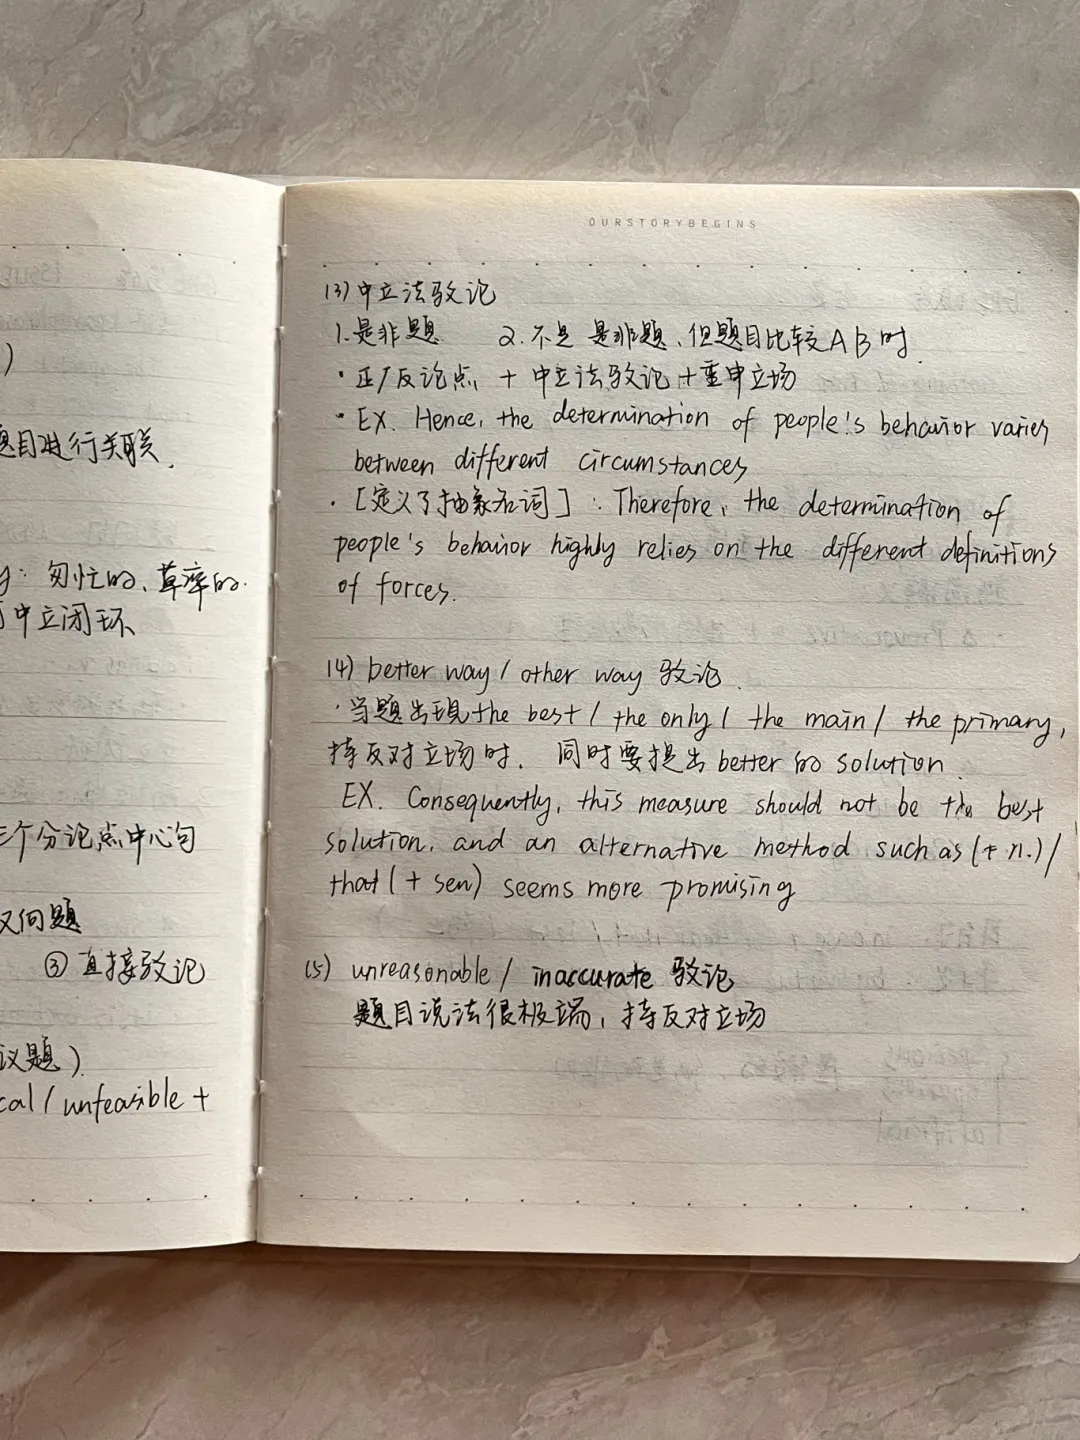 )
题目进行关联.
y: 匆忙的、草率的.
中立闭环
三个分论点中心句
问题
③ 直接驳论
议题)
cal / unfeasible +
OURSTORYBEGINS
(3) 中立法驳论
1. 是非题 2. 不是是非题、但题目比较AB时.
· 正/反论点 + 中立法驳论 + 重申立场
· EX. Hence, the determination of people's behavior varies
between different circumstances
· [定义了抽象名词] : Therefore, the determination of
people's behavior highly relies on the different definitions
of forces.
(4) better way / other way 驳论.
· 当题出现 the best / the only / the main / the primary,
持反对立场时. 同时要提出 better 的 solution.
EX. Consequently, this measure should not be the best
solution, and an alternative method such as (+ n.) /
that (+ sen) seems more promising
(5) unreasonable / inaccurate 驳论
题目说法很极端, 持反对立场